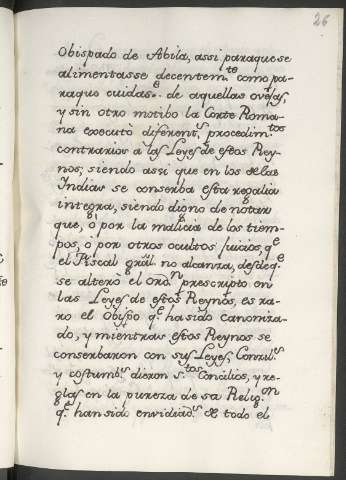 26
Obispado de Abila, assi paraque se
alimentasse decentem.te como pa-
raque cuidas.e de aquellas ovejas,
y sin otro motibo la Corte Roma-
na executò diferent.s procedim.tos
contrarios a las Leyes de estos Rey-
nos; siendo assi que en los de las
Indias se conserba esta regalia
integra, siendo digno de notar
que, ò por la malicia de los tiem-
pos, ò por otros ocultos juicios, q.e
el Fiscal grãl no alcanza, desde q.e
se alterò el ord.n prescripto en
las Leyes de estos Reynos, es ra-
ro el Obispo q.e ha sido canoniza-
do, y mientras estos Reynos se
conserbaron con sus Leyes, Conzil.s
y costumb.s dieron s.tos Concilios, y re-
glas en la pureza de sa Relig.on
q.e han sido envidiad.s de todo el